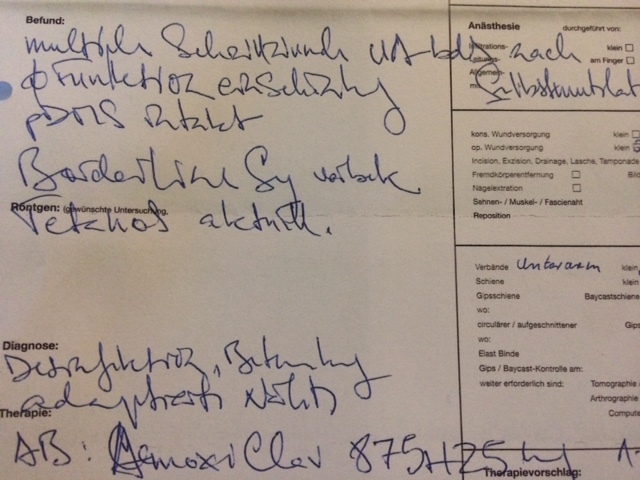 Befund:
multiple Schnittwunden UA bds nach
Selbstmutilat
ϕ Funktionseinschränkung
pDMS intakt
Borderline Sy vorbek.
Röntgen: (gewünschte Untersuchung,
Tetanus aktuell.
Diagnose:
Desinfektion, Betäubung
adaptierte Nähte
Therapie:
AB: Amoxi Clav 875/125
Anästhesie durchgeführt von:
Infiltrations- klein □
Leitungs- am Finger □
Allgemein-
kons. Wundversorgung klein □
op. Wundversorgung klein
Incision, Exzision, Drainage, Lasche, Tamponade
Fremdkörperentfernung □
Nagelextraktion □
Sehnen- / Muskel- / Fasciennaht
Reposition
Verbände Unterarm klein
Schiene klein
Gipsschiene Baycastschiene
wo:
circulärer / aufgeschnittener Gips
wo:
Elast Binde
Gips / Baycast-Kontrolle am:
weiter erforderlich sind: Tomographie
Arthrographie
Compute
Therapievorschlag: